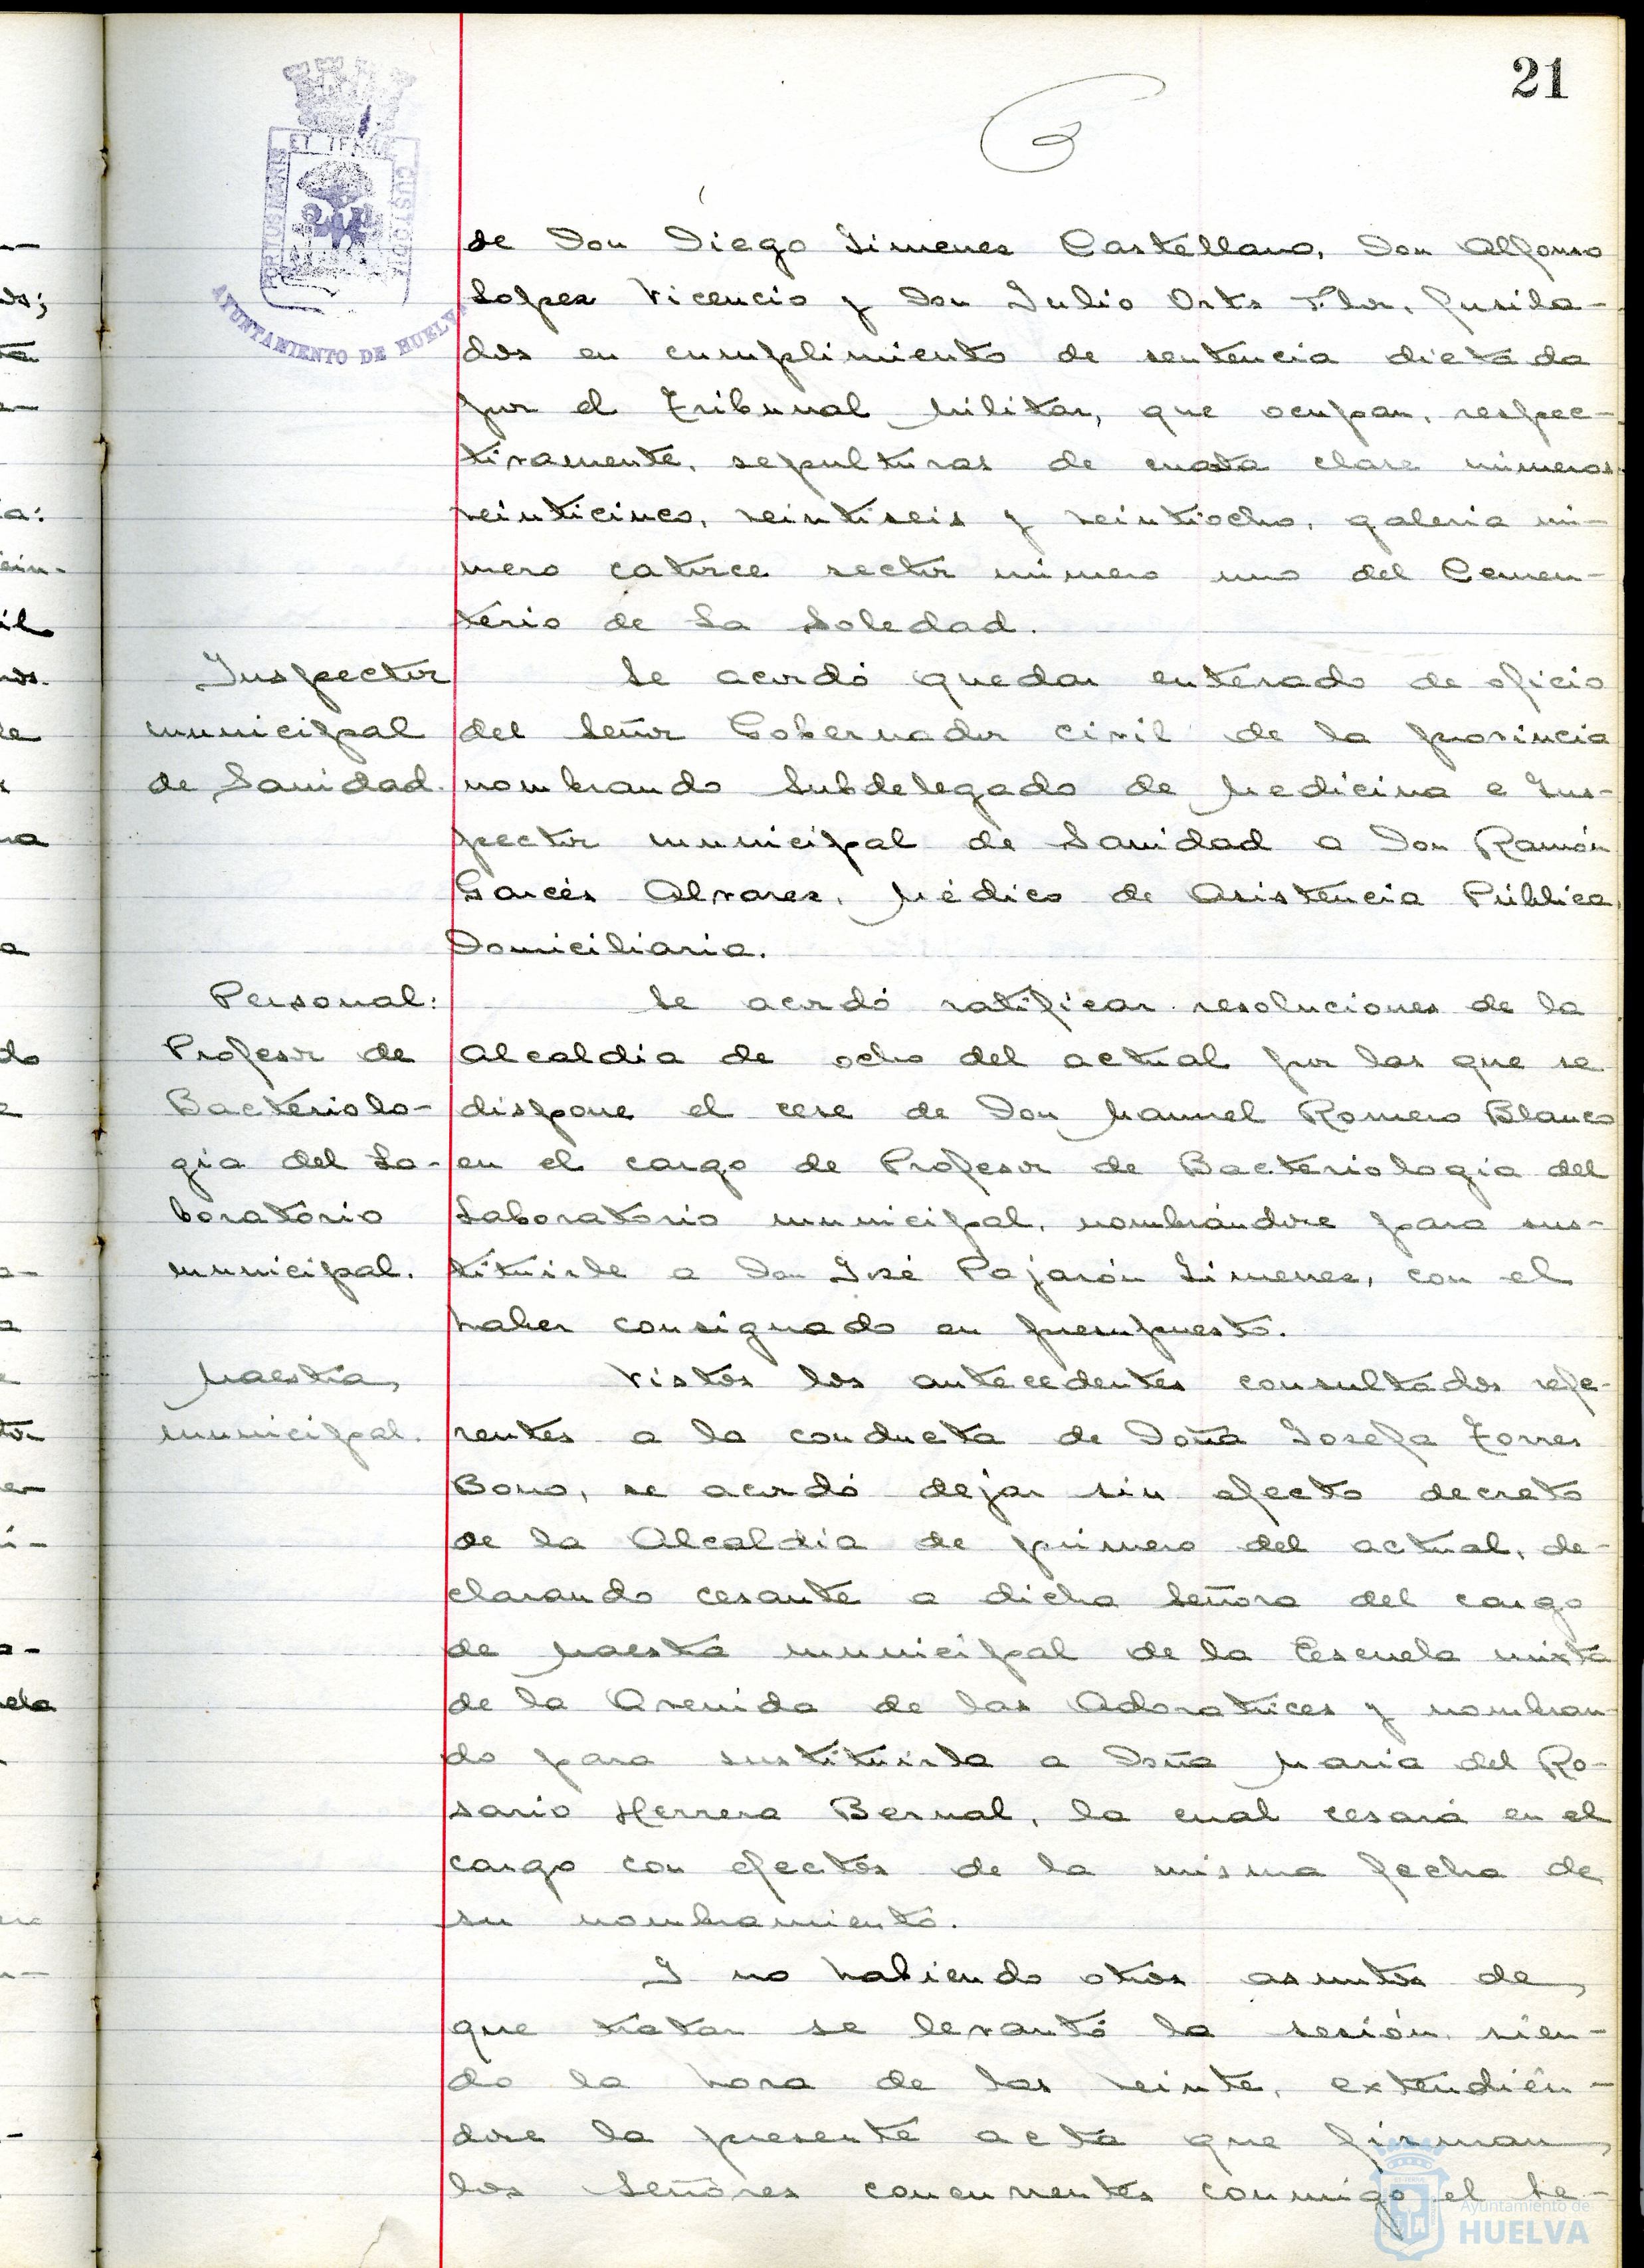 21
PORTUS MARIS
ET TERRAE
CUSTODIA
AYUNTAMIENTO DE HUELVA
de Don Diego Jimenez Castellano, Don Alfonso
Lopez Vicencio y Don Julio Orts Flor, fusila-
dos en cumplimiento de sentencia dictada
por el Tribunal Militar, que ocupan, respec-
tivamente, sepulturas de cuarta clase números
veinticinco, veintiseis y veintiocho, galeria nú-
mero catorce sector número uno del Cemen-
terio de La Soledad.
Inspector
municipal
de Sanidad.
Se acordó quedar enterado de oficio
del Señor Gobernador Civil de la provincia
nombrando Subdelegado de Medicina e Ins-
pector municipal de Sanidad a Don Ramón
Garcés Alvarez, Médico de Asistencia Pública
Domiciliaria.
Personal:
Profesor de
Bacteriolo-
gia del La-
boratorio
municipal.
Se acordó ratificar resoluciones de la
Alcaldia de ocho del actual por las que se
dispone el cese de Don Manuel Romero Blanco
en el cargo de Profesor de Bacteriologia del
Laboratorio municipal, nombrándose para sus-
tituirle a Don José Pajarón Jimenez, con el
haber consignado en presupuesto.
Maestra
municipal.
Vistos los antecedentes consultados refe-
rentes a la conducta de Doña Josefa Torres
Bono, se acordó dejar sin efecto decreto
de la Alcaldia de primero del actual, de-
clarando cesante a dicha Señora del cargo
de Maestra municipal de la Escuela mixta
de la Avenida de las Adoratrices y nombran-
do para sustituirla a Doña Maria del Ro-
sario Herrera Bernal, la cual cesará en el
cargo con efectos de la misma fecha de
su nombramiento.
Y no habiendo otros asuntos de
que tratar se levantó la sesión, sien-
do la hora de las veinte, extendién-
dose la presente acta que firman
los Señores concurrentes conmigo el Se-
Ayuntamiento de
HUELVA